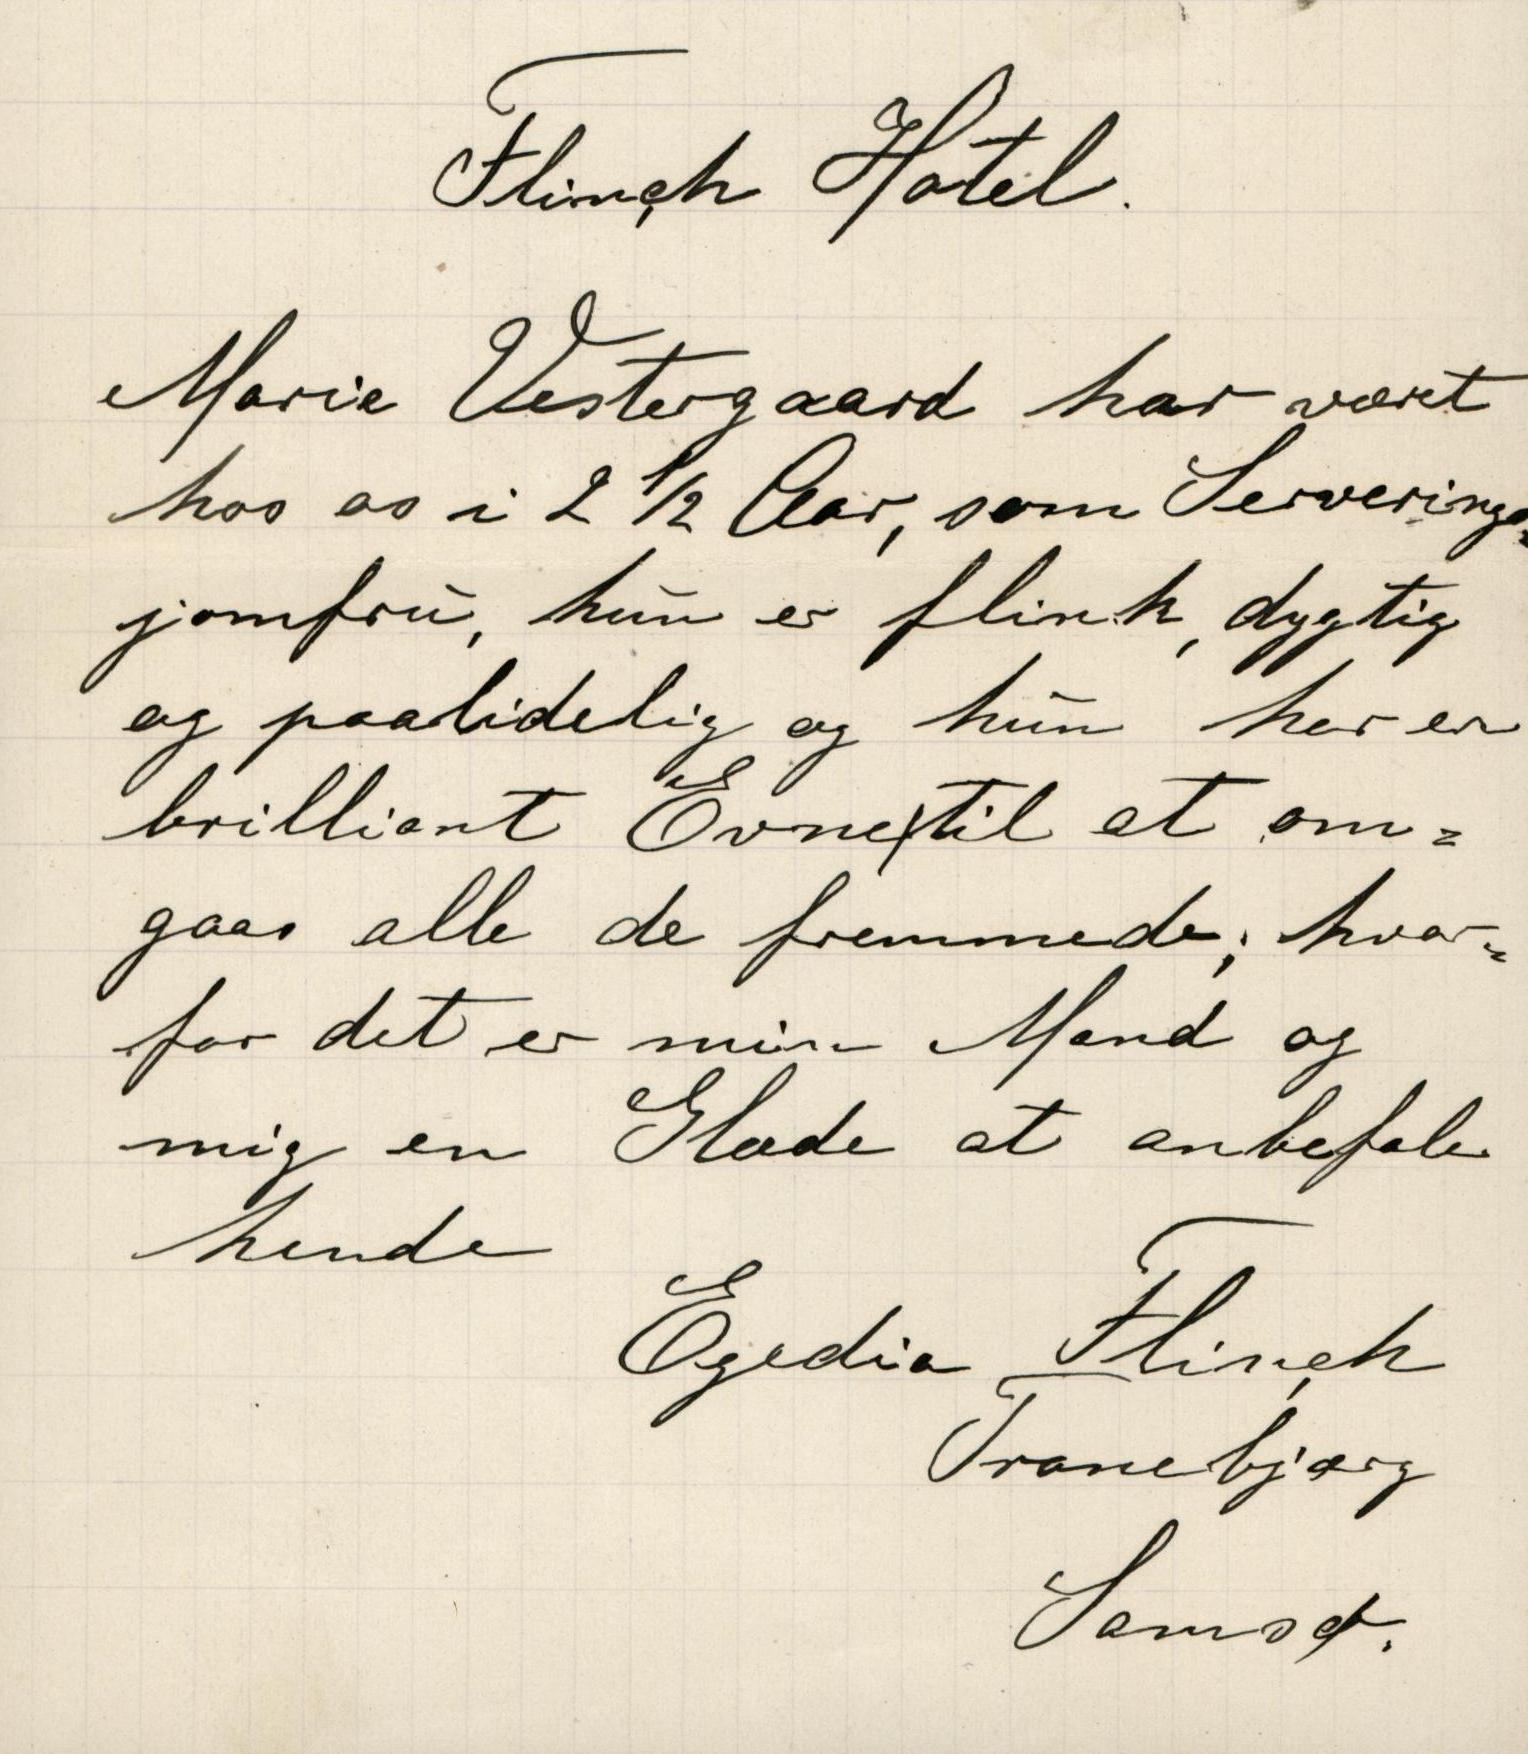 Flinch Hotel.
Marie Vestergaard har været
hos os i 2 1/2 Aar, som Serverings=
jomfru, hun er flink, dygtig
og paalidelig og hun har en
brilliant Evne til at om=
gaas alle de fremmede; hvor=
for det er min Mand og
mig en Glæde at anbefale
hende
Egedia Flinch
Tranebjærg
Samsø.